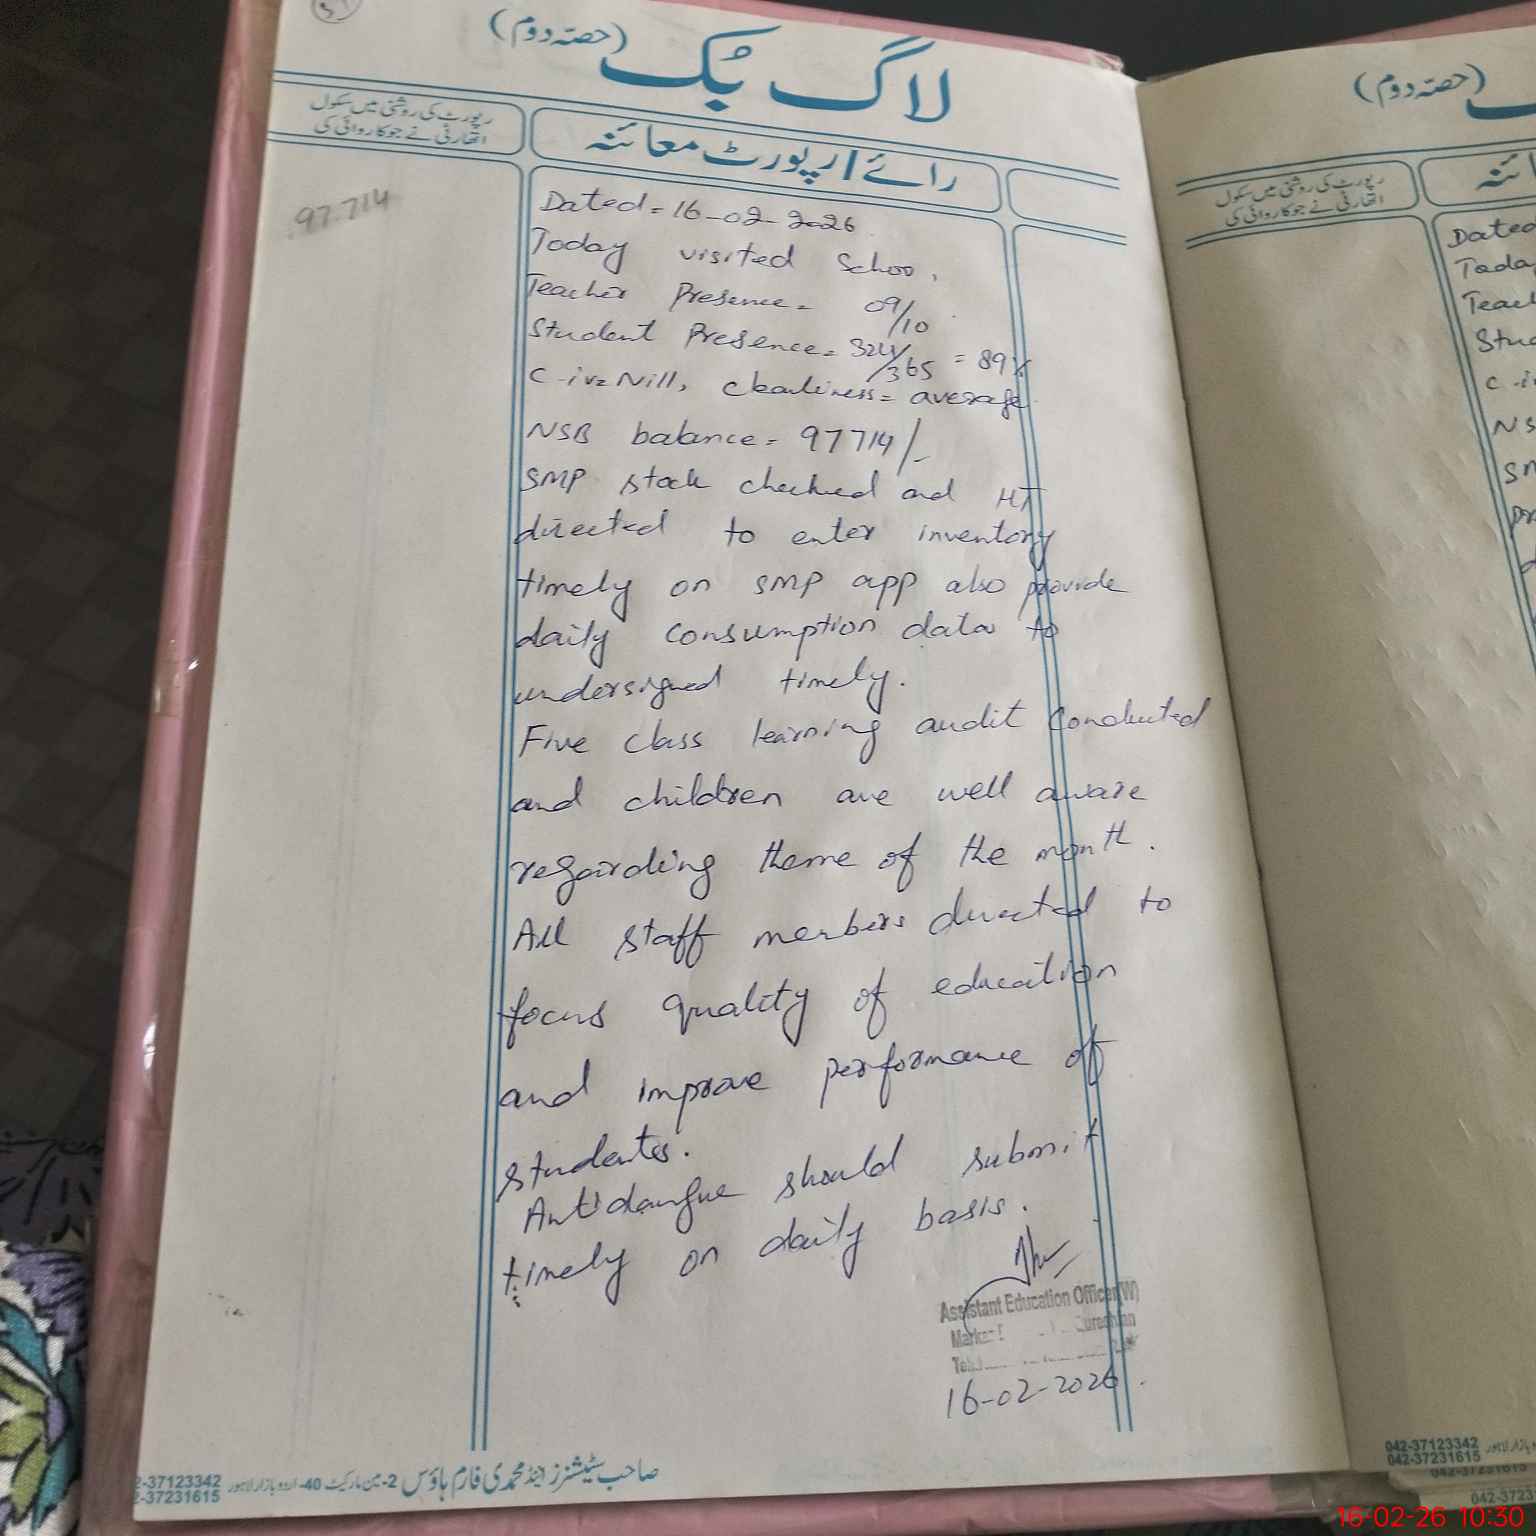 لاگ بُک (حصّہ دوم)
رپورٹ کی روشنی میں سکول
اتھارٹی نے جو کاروائی کی
رائے / رپورٹ معائنہ
97.714
Dated = 16-02-2026
Today visited Schoo,
Teacher Presence = 09/10
Student Presence = 324/365 = 89%
C-iv = Nill, cleanliness = average
NSB balance = 97714/-
SMP stock checked and HT
directed to enter inventory
timely on SMP app also provide
daily consumption data to
undersigned timely.
Five class learning audit conducted
and children are well aware
regarding theme of the month.
All staff members directed to
focus quality of education
and improve performance of
students.
Antidangue should submit
timely on daily basis.
Assistant Education Officer (W)
16-02-2026.
صاحب سٹیشنرز اینڈ محمدی فارم ہاؤس 2-مین مارکیٹ 40-اردو بازار لاہور
2-37123342
2-37231615
(حصّہ دوم)
رپورٹ کی روشنی میں سکول
اتھارٹی نے جو کاروائی کی
Dated
Toda
Teac
Stu
C-i
NS
SM
042-37123342
042-37231615
16-02-26 10:30